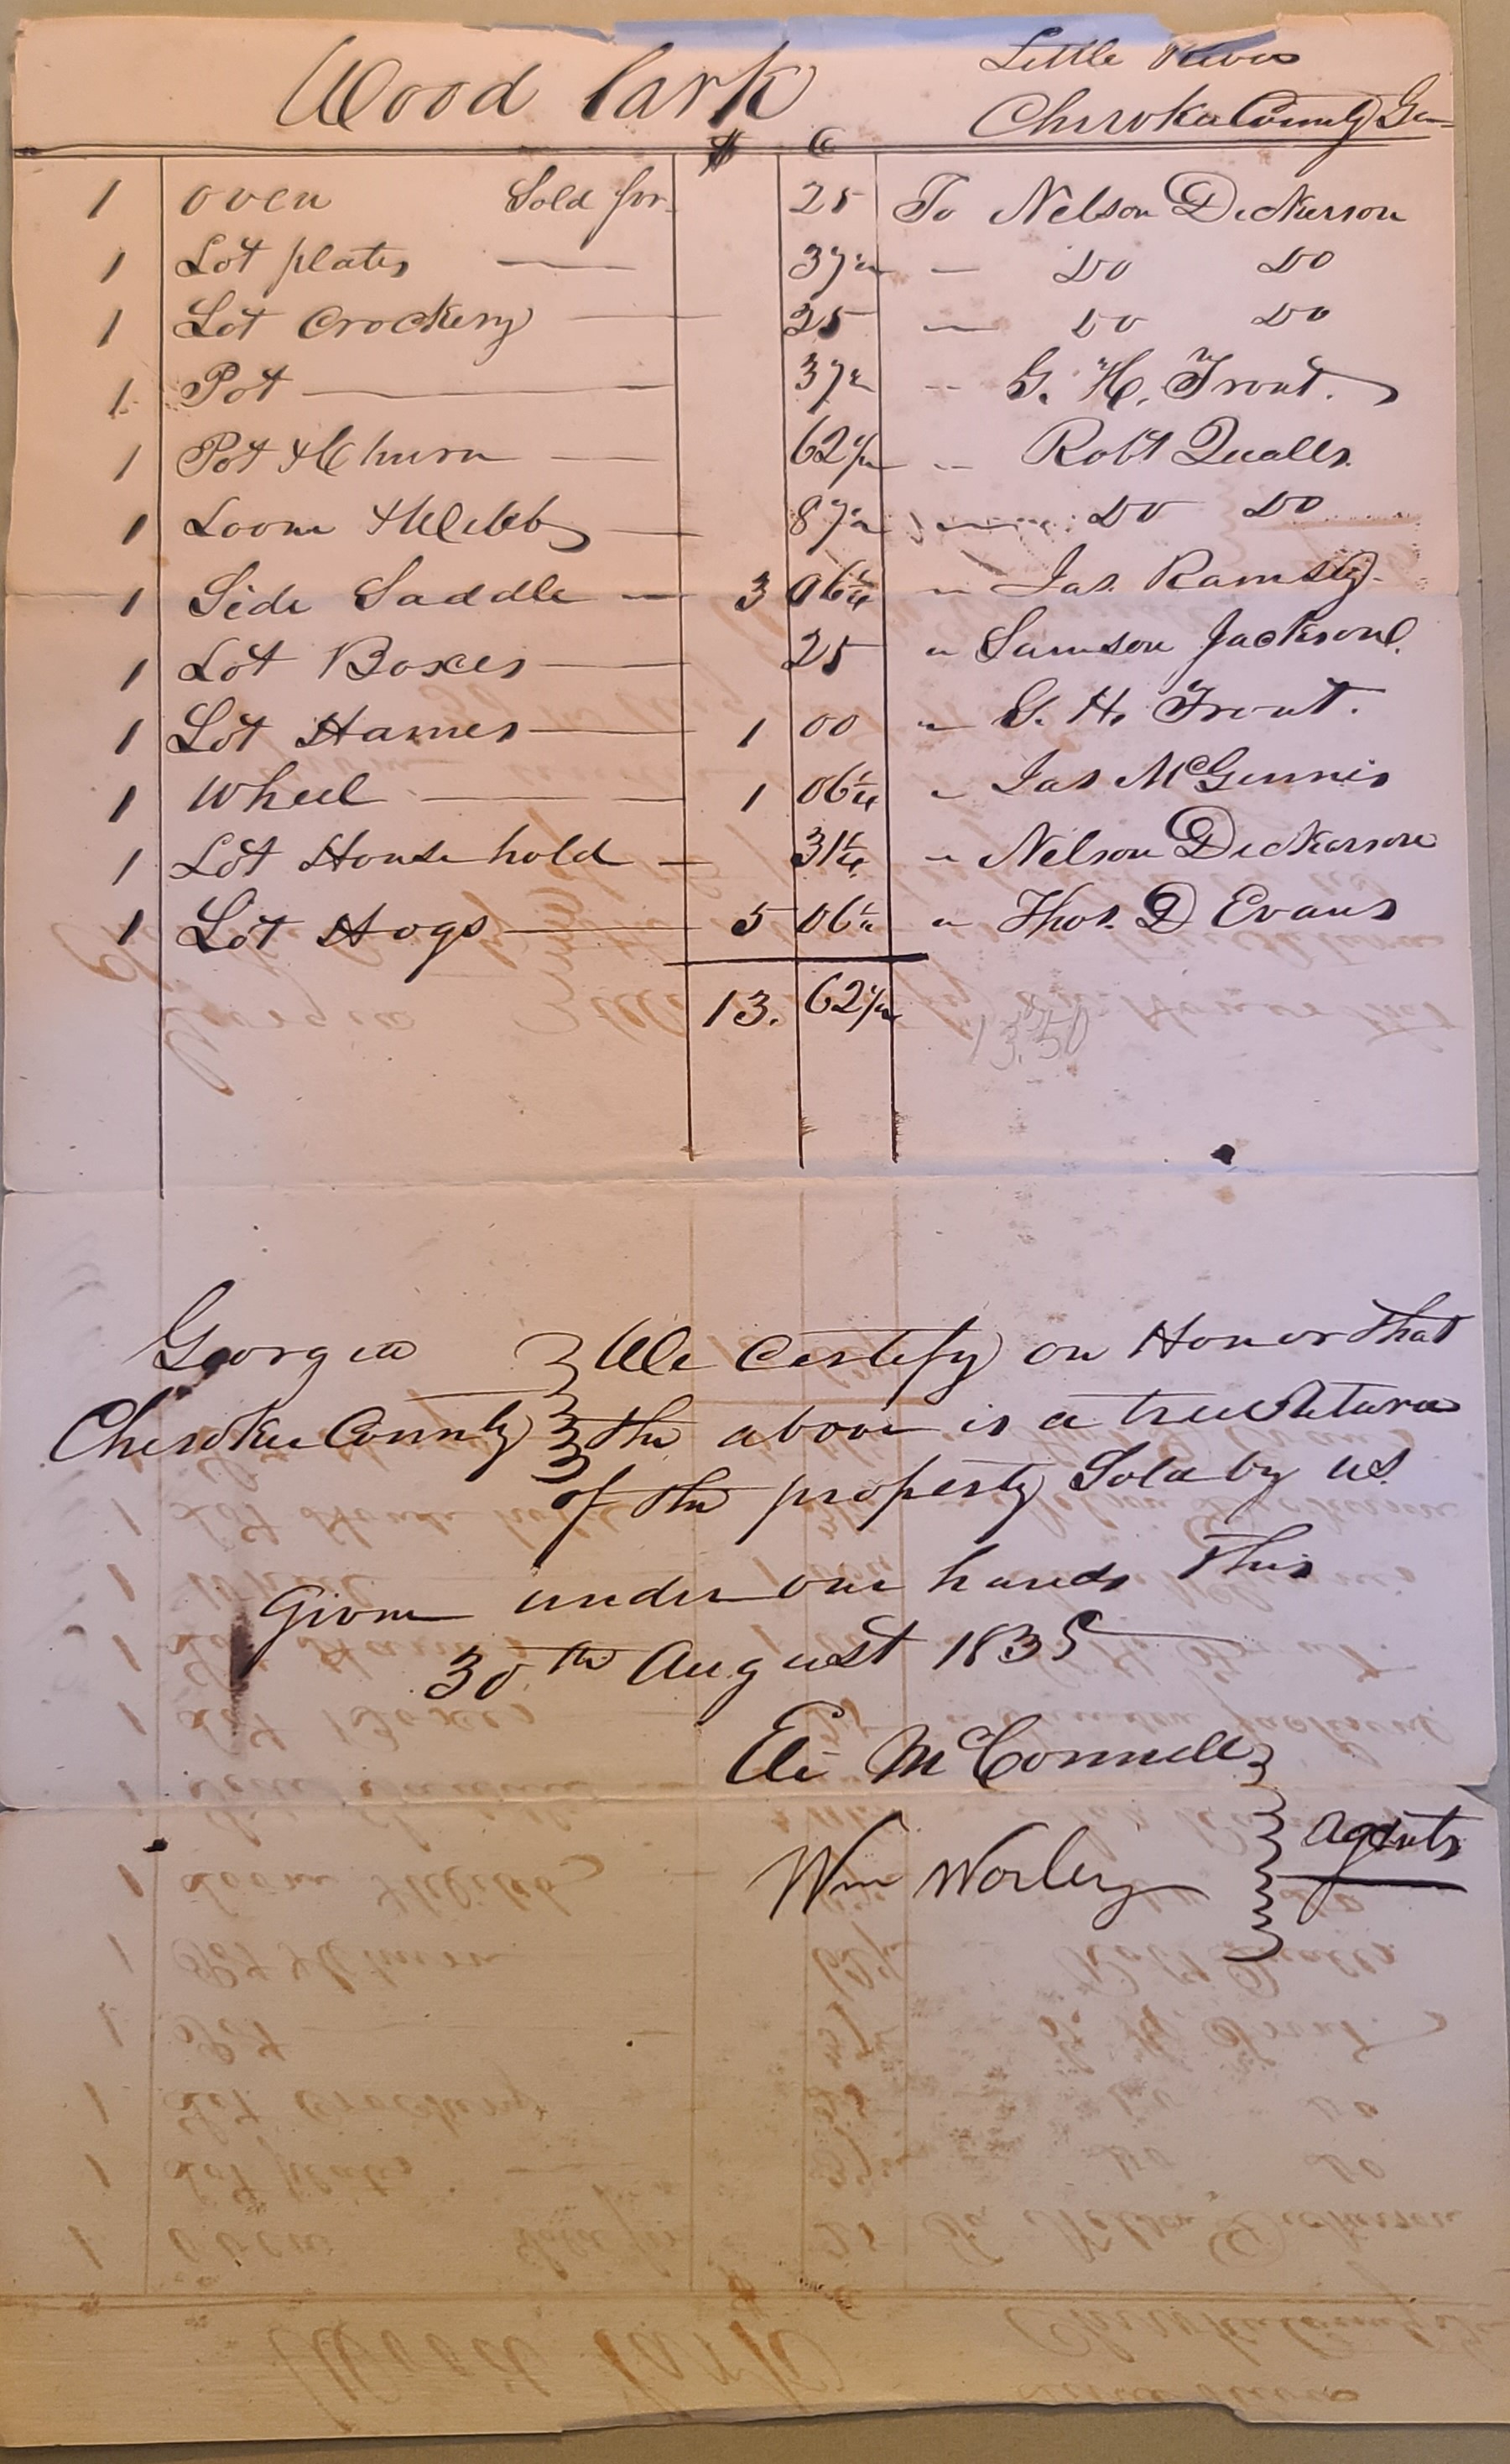 Wood Lark
Little River
Cherokee County Ga
$ C
1 Oven Sold for 25 To Nelson Dickerson
1 Lot plates — 37½ — Do Do
1 Lot Crockery — 25 — Do Do
1 Pot — 37½ " G. H. Trout.
1 Pot & Churn — 62½ " Robt Qualls.
1 Loom & Webb — 87½ " Do Do
1 Side Saddle — 3 06¼ " Jas. Ramsey.
1 Lot Boxes — 25 " Samson Jackson
1 Lot Hames — 1 00 " G. H. Trout.
1 Wheel — 1 06¼ " Jas McGinnis
1 Lot House hold — 31¼ " Nelson Dickerson
1 Lot Hogs — 5 06¼ " Thos. D Evans
13. 62½
13.50
Georgia We Certify on Honor that
Cherokee County the above is a true Return
of the property Sold by us.
Given under our hands This
30th August 1835
Eli McConnell
Wm Worley Agents